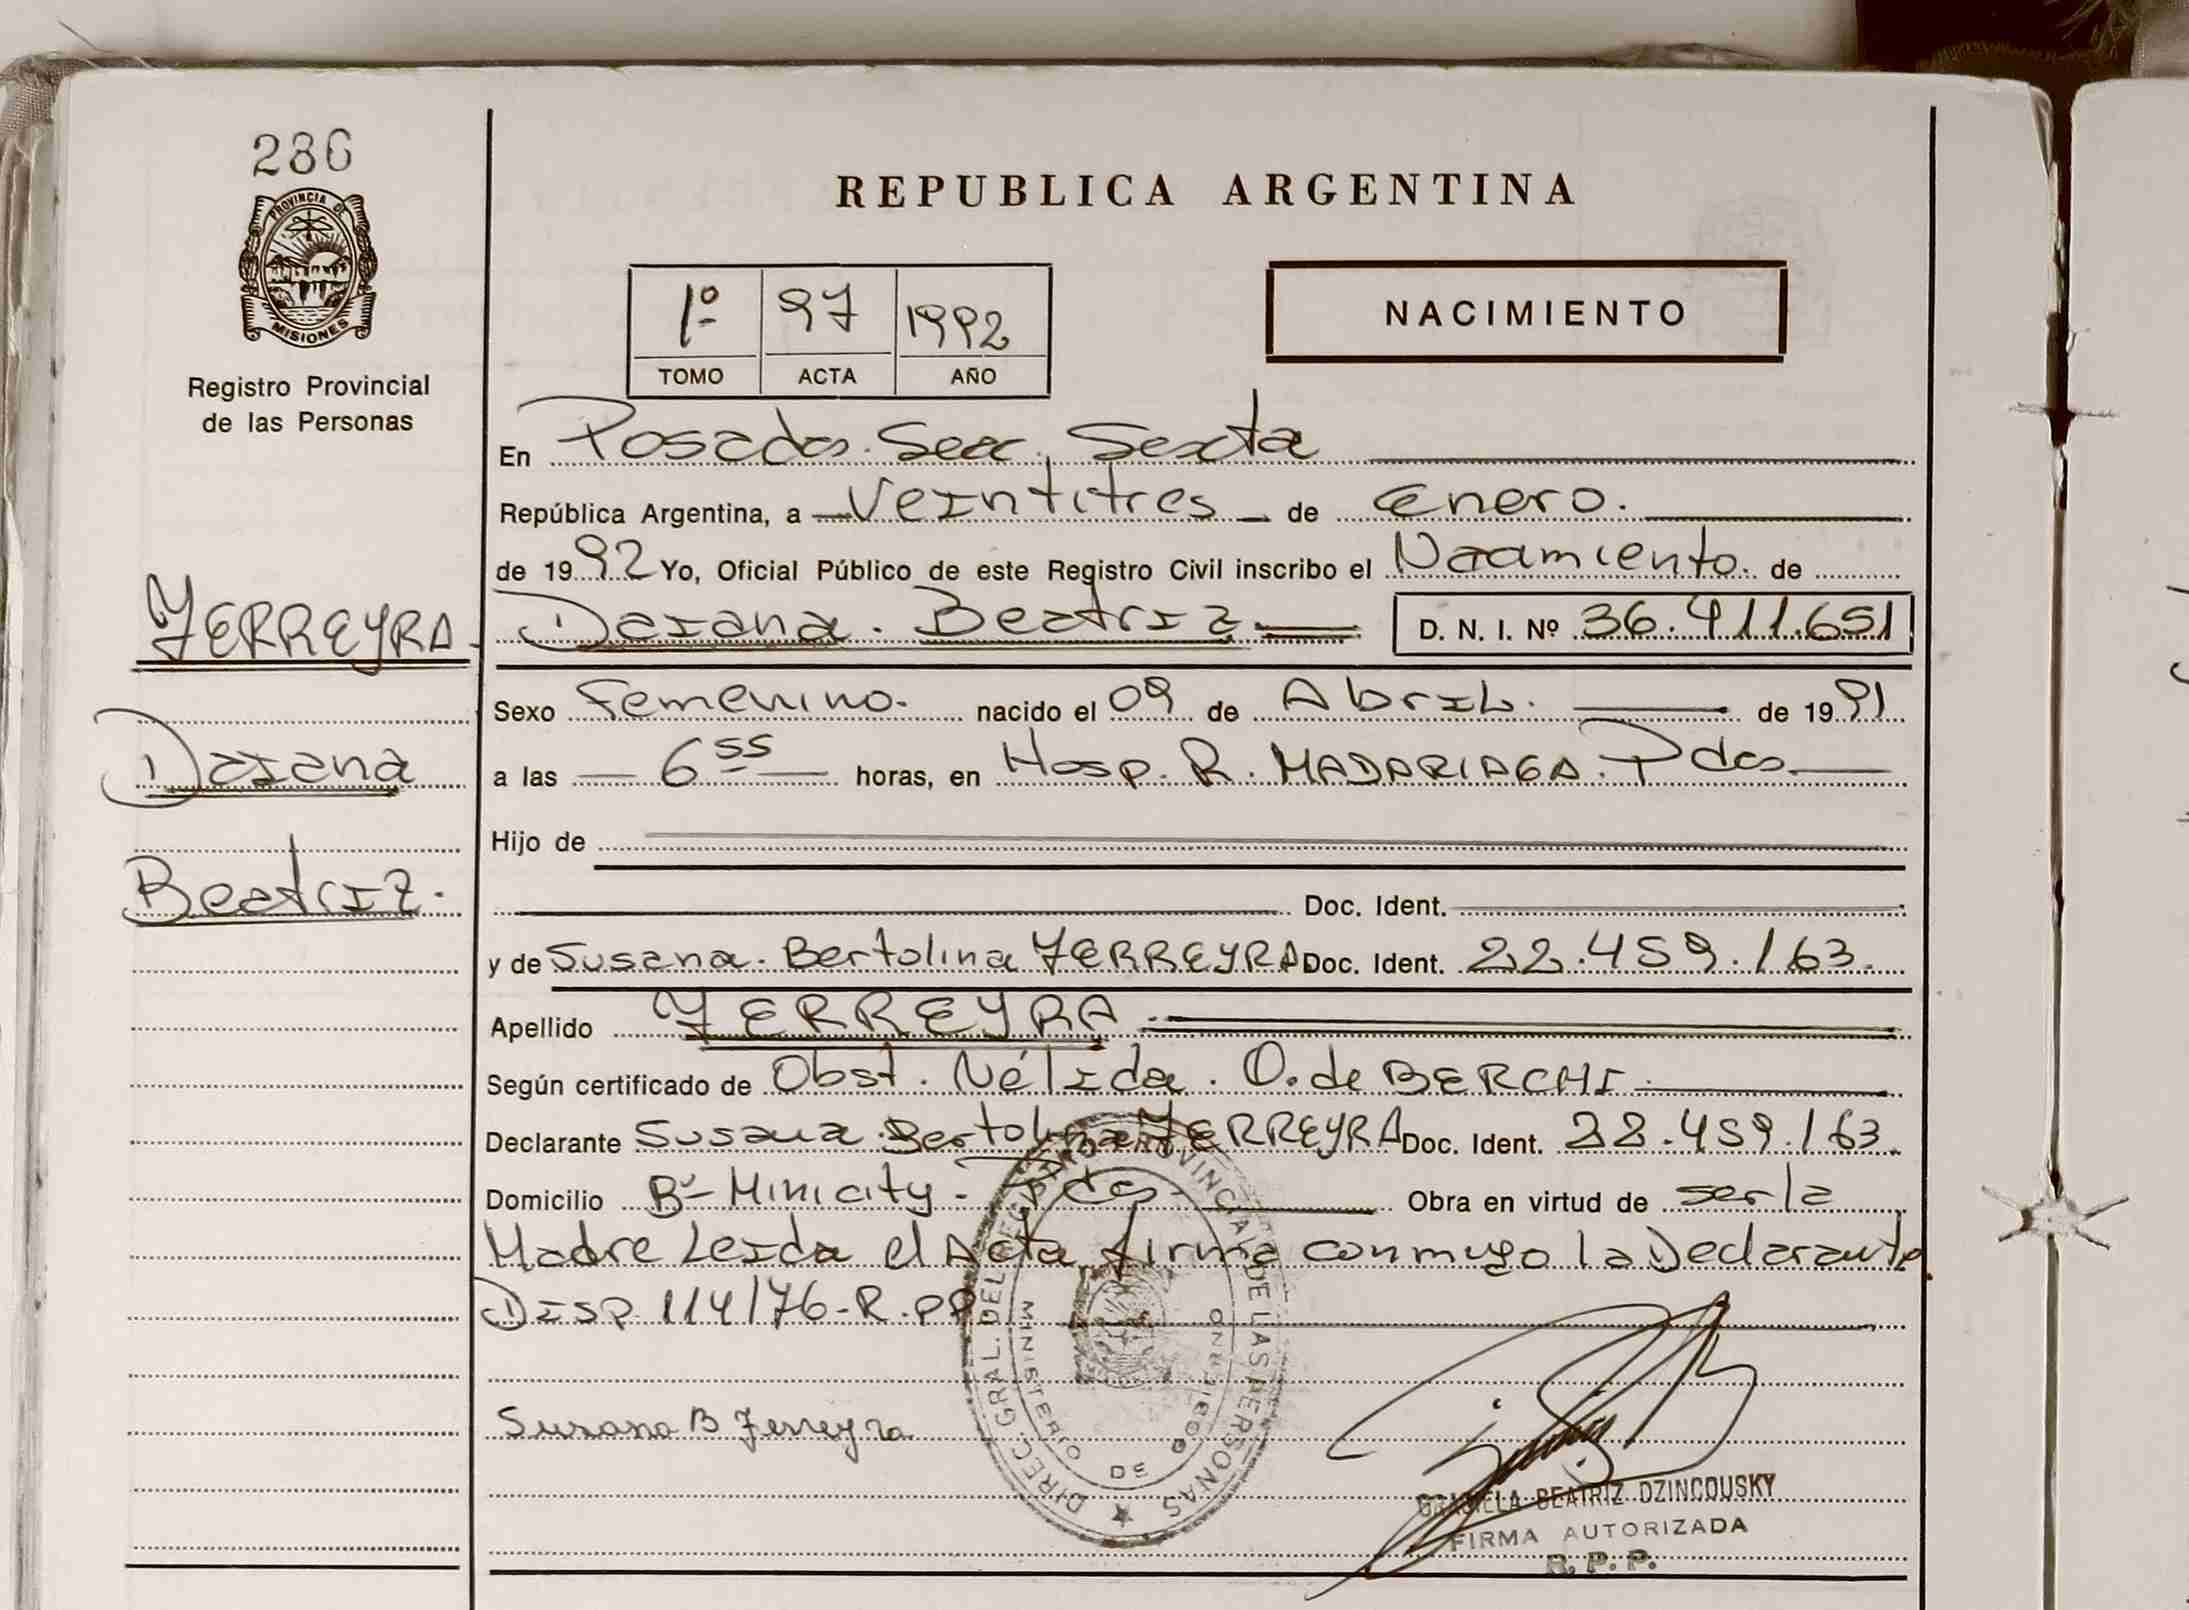 286
PROVINCIA DE
MISIONES
Registro Provincial
de las Personas
REPUBLICA ARGENTINA
1º 97 1992
TOMO ACTA AÑO
NACIMIENTO
En Posadas. Secc. Sexta
República Argentina, a Veintitres de Enero.
de 1992 Yo, Oficial Público de este Registro Civil inscribo el Nacimiento. de
FERREYRA
Daiana. Beatriz D. N. I. Nº 36.411.651
Sexo Femenino. nacido el 09 de Abril. de 1991
Daiana
a las 6 55 horas, en Hosp. R. MADARIAGA. Pdas.
Hijo de
Beatriz.
Doc. Ident.
y de Susana. Bertolina FERREYRA Doc. Ident. 22.459.163.
Apellido FERREYRA.
Según certificado de Obst. Nélida. O. de BERCHI
Declarante Susana Bertolina FERREYRA Doc. Ident. 22.459.163.
Domicilio Bº- Minicity. Pdas. Obra en virtud de ser la
Madre Leida el Acta firma conmigo la Declarante.
Disp. 114/76-R.PP
Susana B Ferreyra
DIREC. GRAL. DEL REGISTRO PROVINCIAL DE LAS PERSONAS
MINISTERIO DE GOBIERNO
GRACIELA BEATRIZ DZINCOUSKY
FIRMA AUTORIZADA
R. P. P.